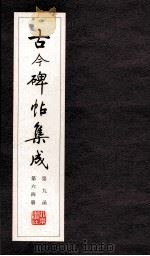 古今碑帖集成
第九函
第六四册